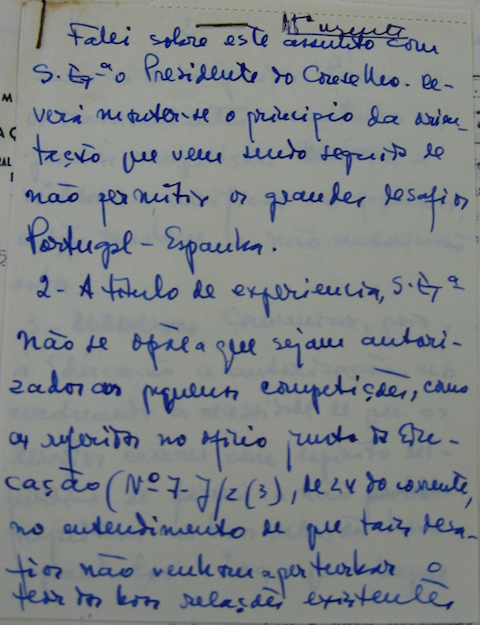 Mº urgente
Falei sobre este assunto com
S. Exª o Presidente do Conselho. De-
verá manter-se o princípio da orien-
tação que vem sendo seguido de
não permitir os grandes desafios
Portugal - Espanha.
2 - A título de experiencia, S. Exª
não se opõe a que sejam autori-
zados as pequenas competições, como
as referidas no ofício junto da Edu-
cação (Nº 7-J/2(3), de 24 do corrente,
no entendimento de que tais desa-
fios não venham a perturbar o
teor das boas relações existentes